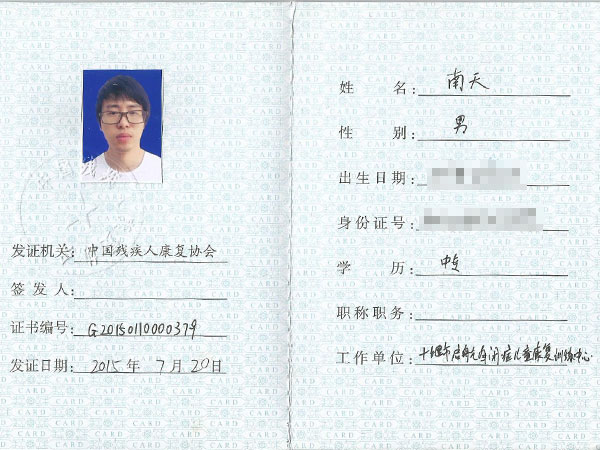 发证机关：中国残疾人康复协会
签发人：
证书编号：G20150110000379
发证日期：2015年7月20日
姓名：南天
性别：男
出生日期：
身份证号：
学历：中专
职称职务：
工作单位：十堰市启明星自闭症儿童康复训练中心